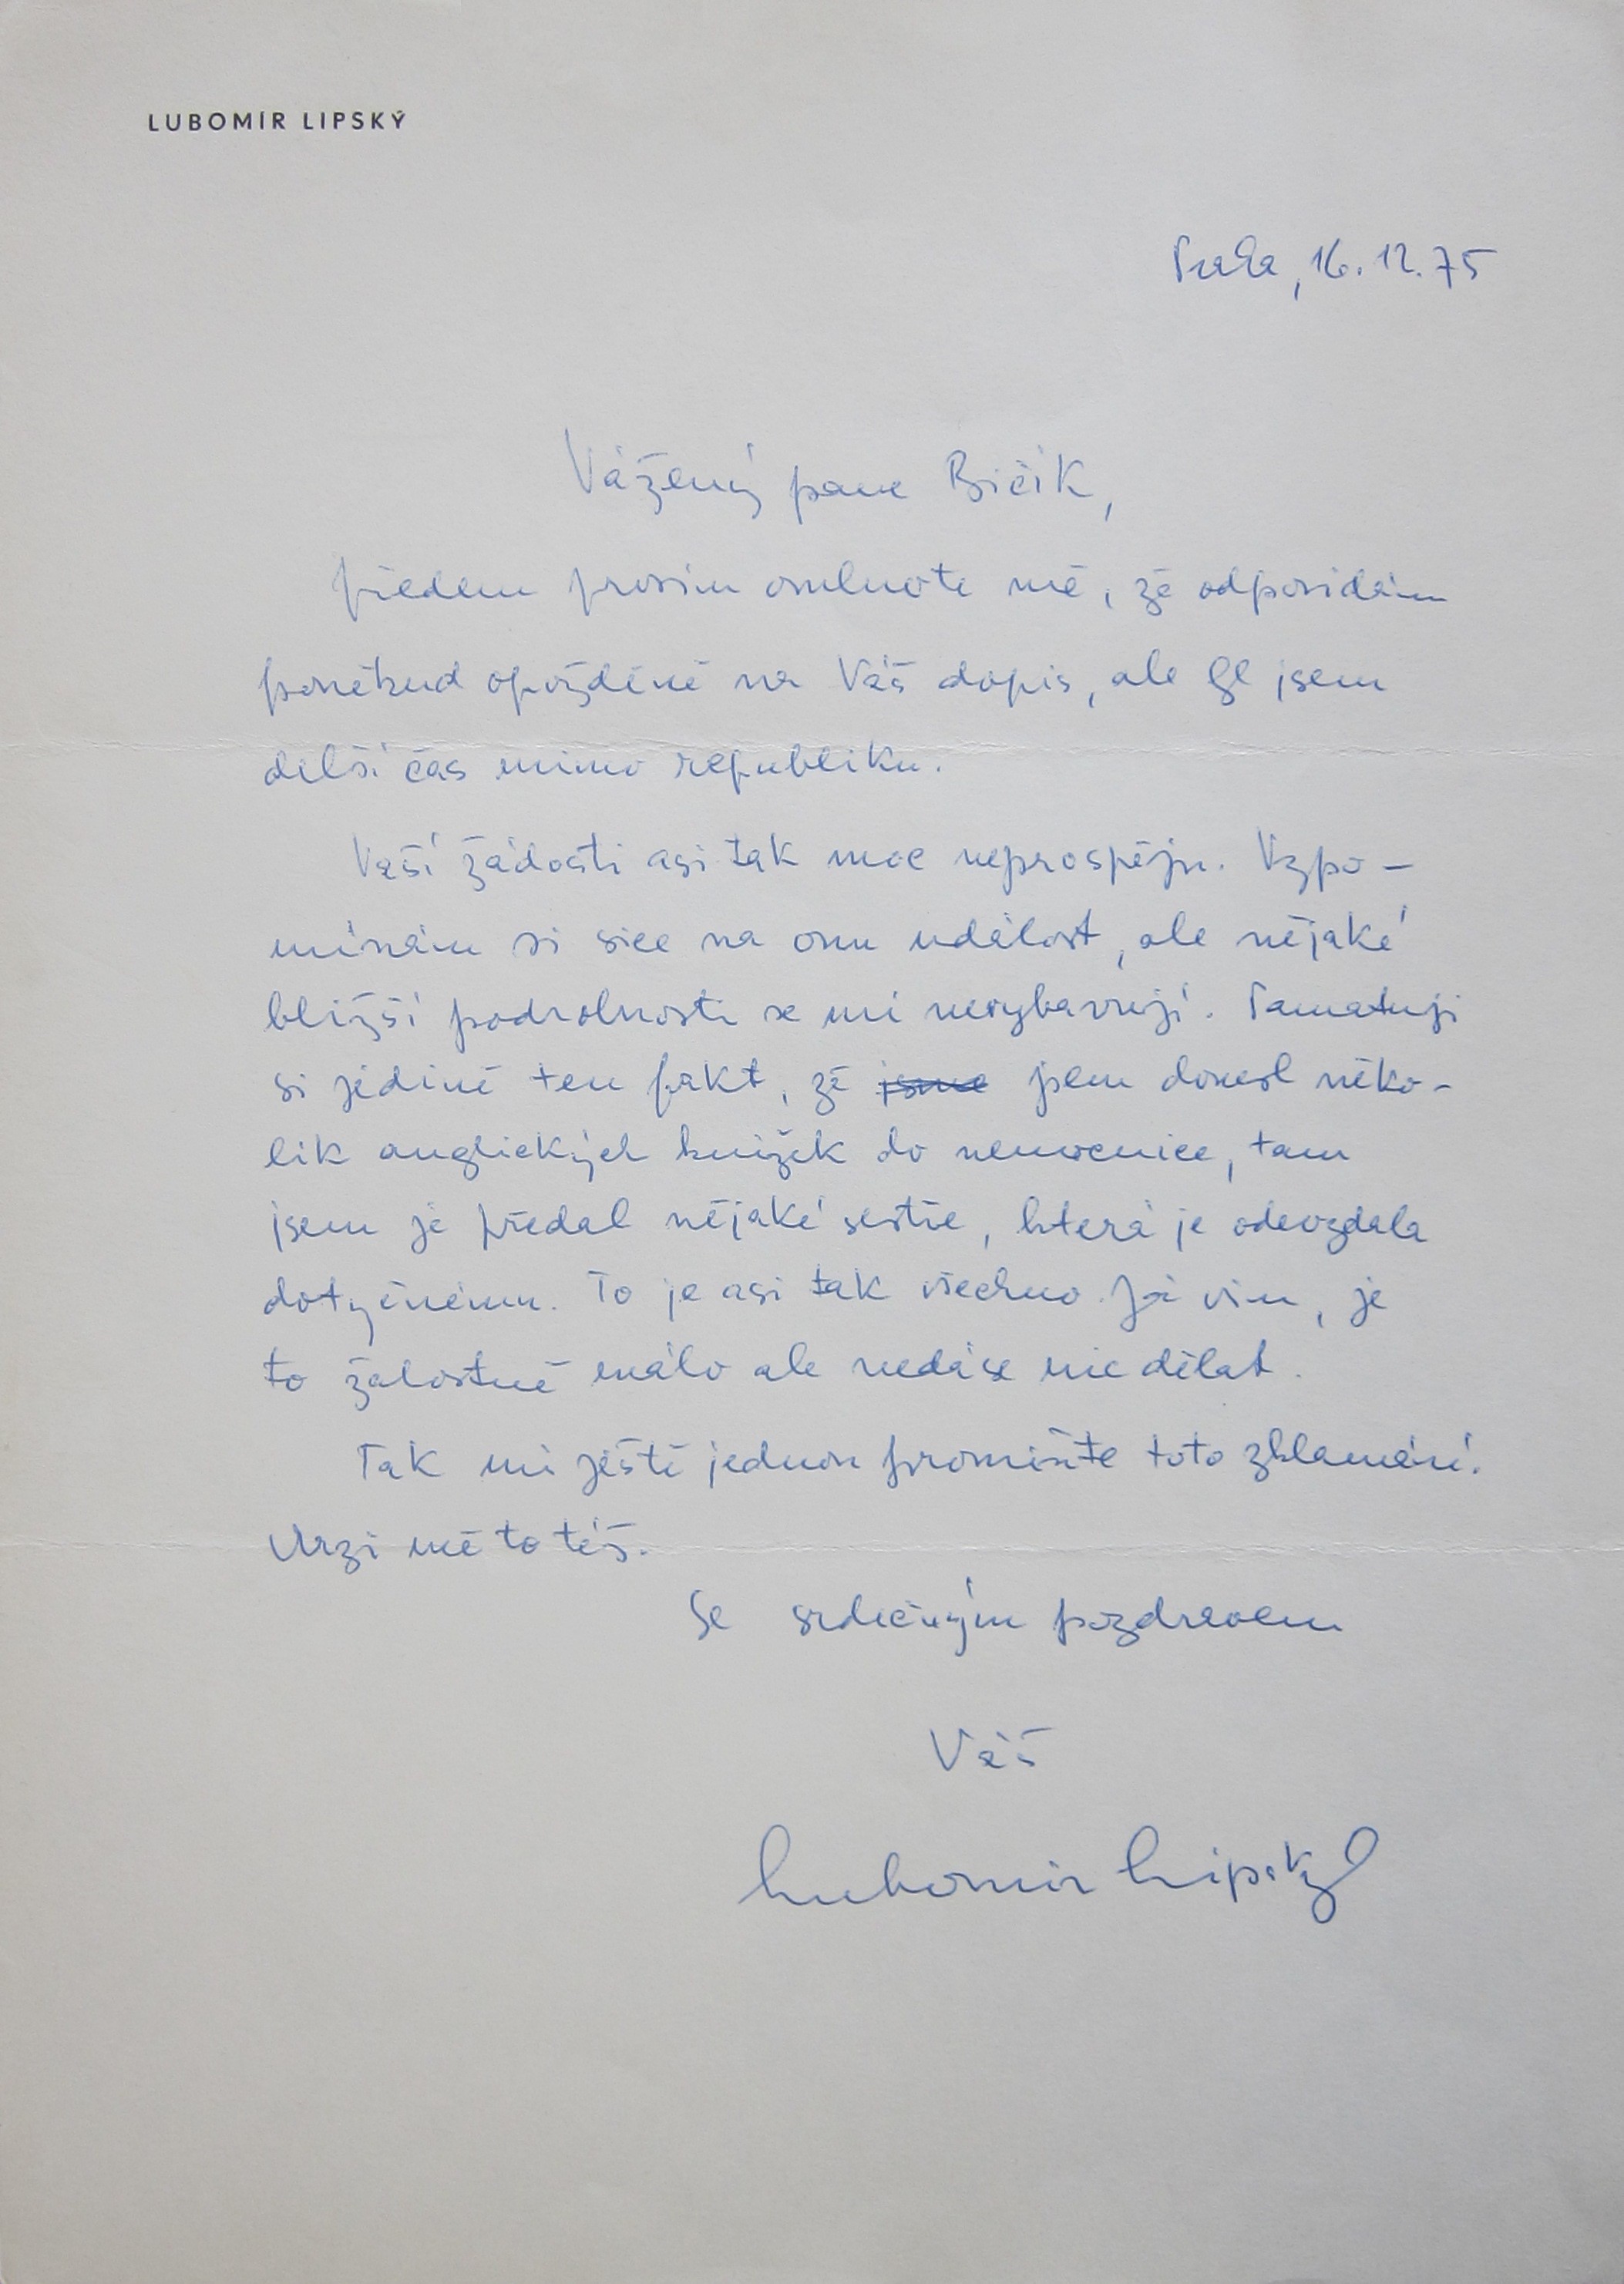 LUBOMÍR LIPSKÝ
Praha, 16. 12. 75
Vážený pane Bičík,
předem prosím omluvte mě, že odpovídám
poněkud opožděně na Váš dopis, ale byl jsem
delší čas mimo republiku.
Vaší žádosti asi tak moc neprospěju. Vzpo-
mínám si sice na onu událost, ale nějaké
bližší podrobnosti se mi nevybavují. Pamatuji
si jedině ten fakt, že jsme jsem donesl něko-
lik anglických knížek do nemocnice, tam
jsem je předal nějaké sestře, která je odevzdala
dotyčnému. To je asi tak všechno. Já vím, je
to žalostně málo ale nedá se nic dělat.
Tak mi ještě jednou promiňte toto zklamání.
Mrzí mě to též.
Se srdečným pozdravem
Váš
Lubomír Lipský